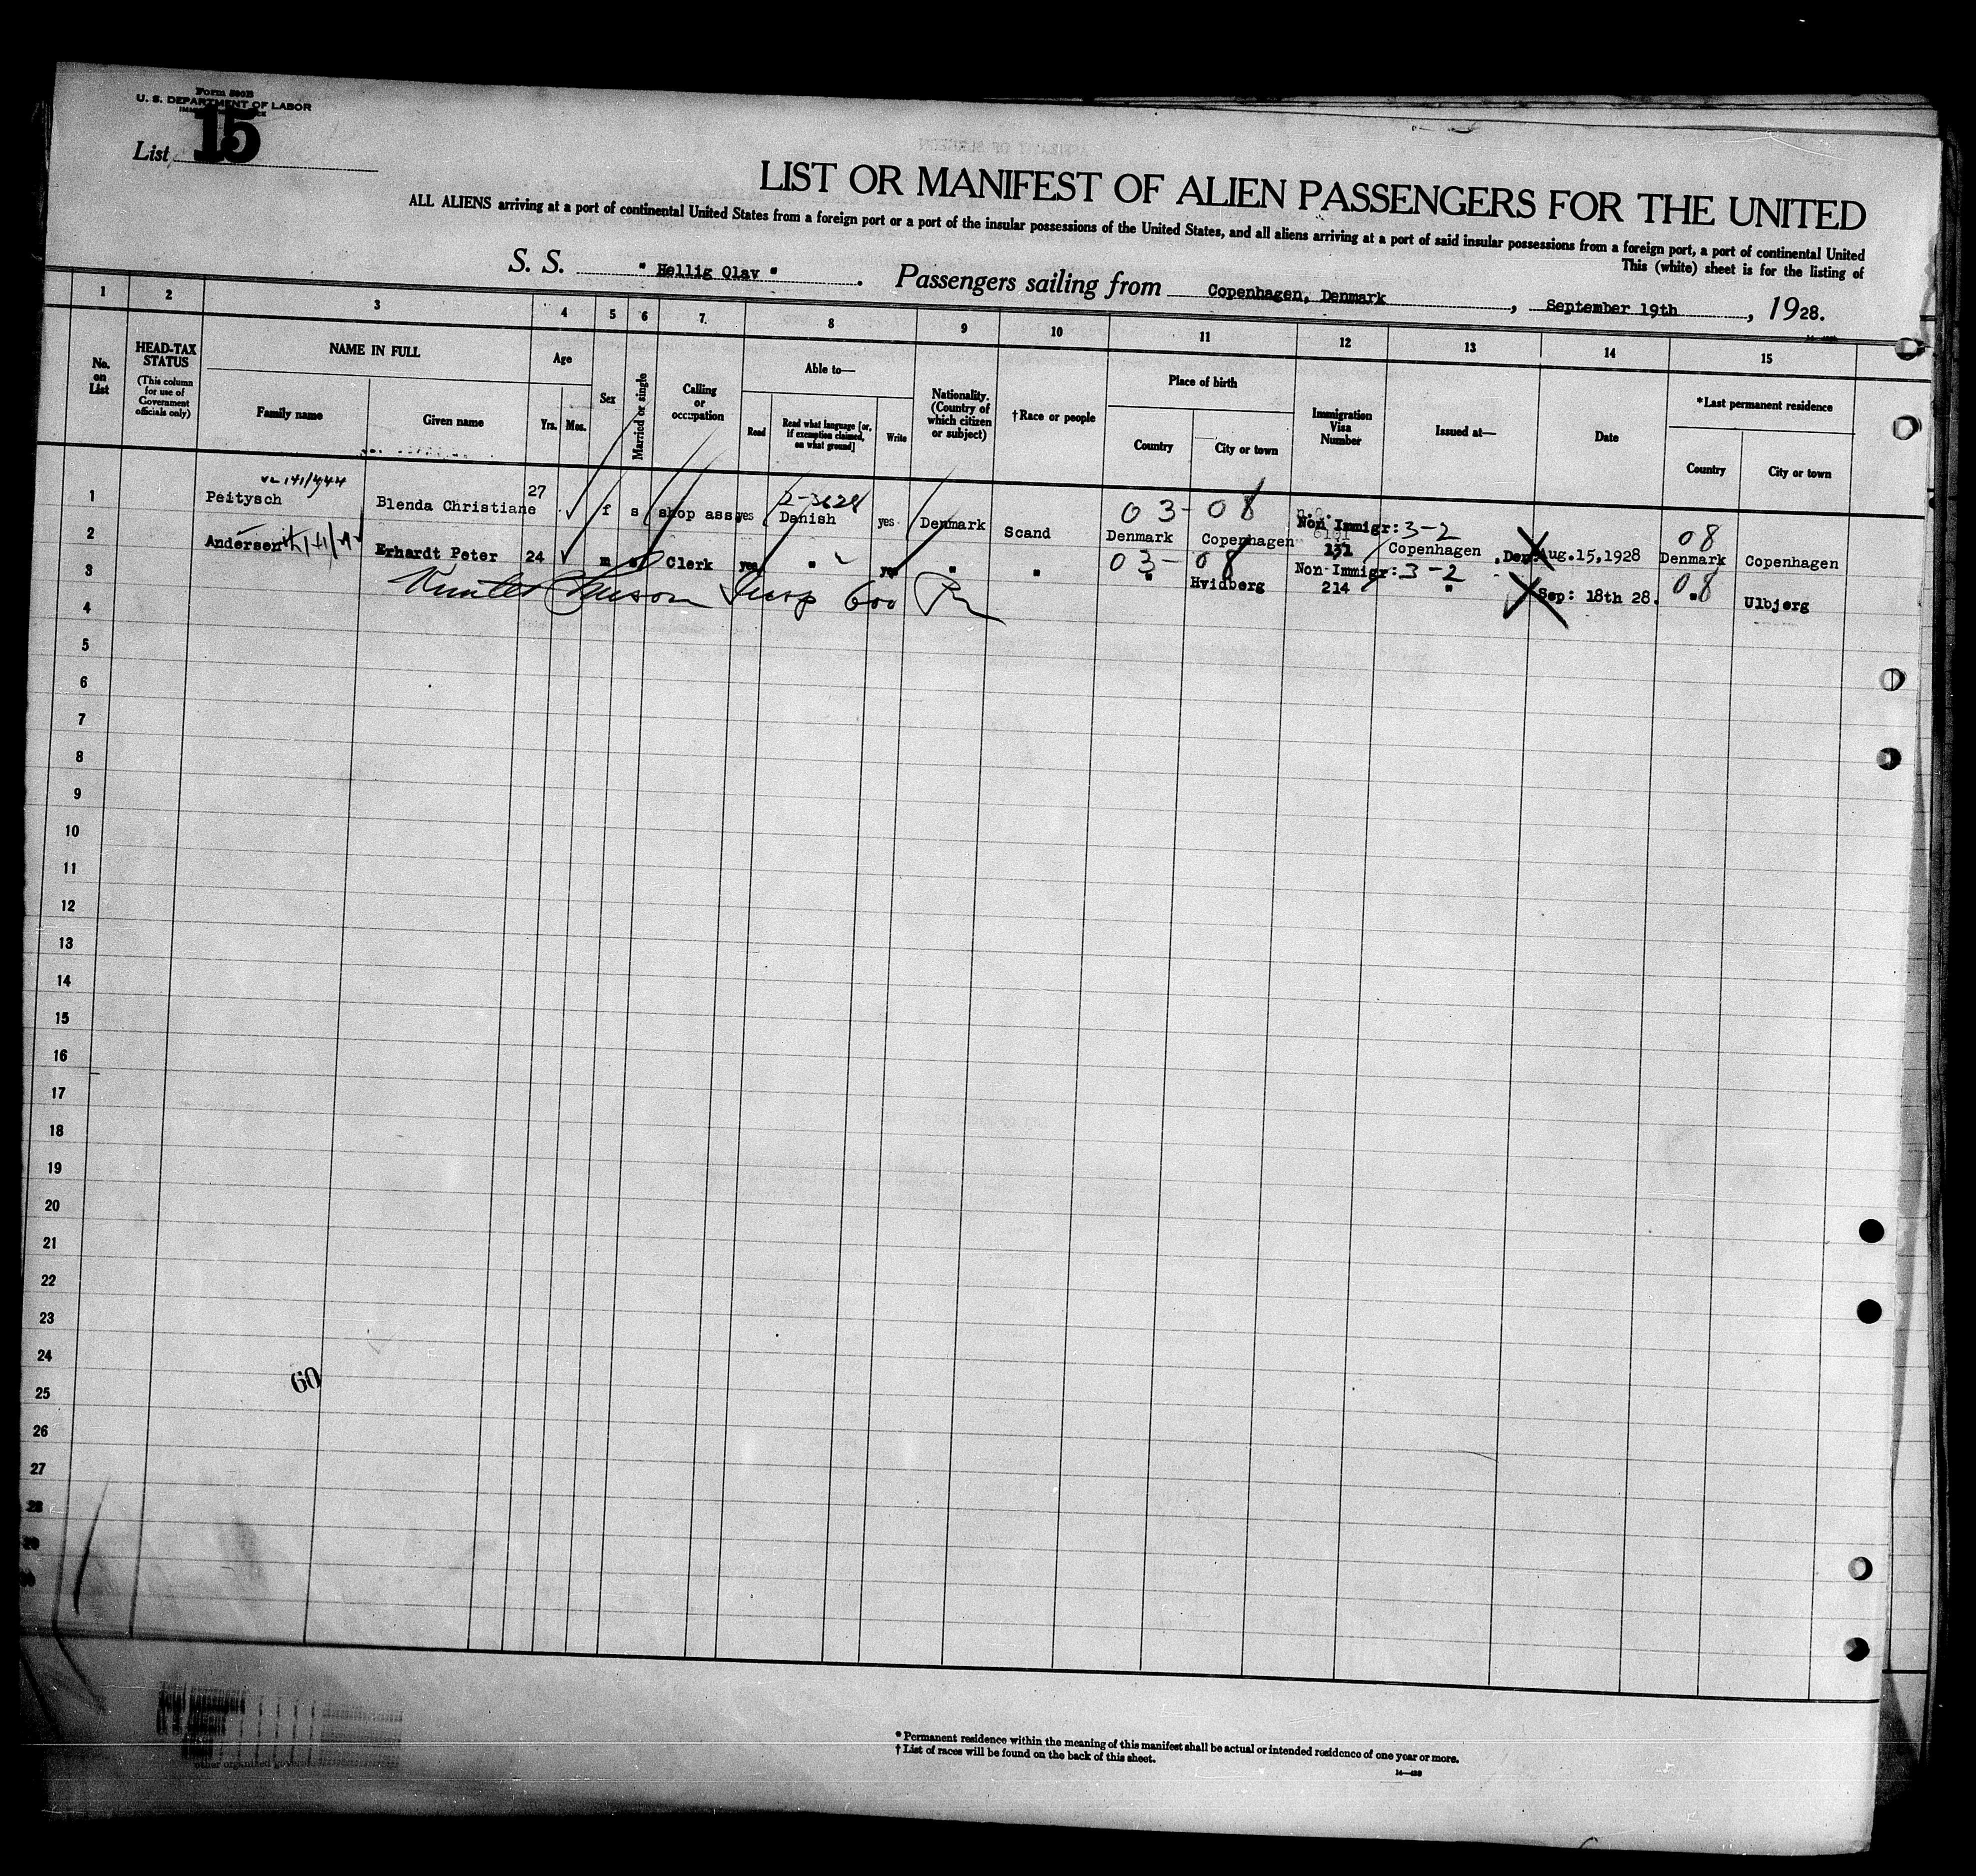 Form 500B
U. S. DEPARTMENT OF LABOR
List 15
LIST OR MANIFEST OF ALIEN PASSENGERS FOR THE UNITED
ALL ALIENS arriving at a port of continental United States from a foreign port or a port of the insular possessions of the United States, and all aliens arriving at a port of said insular possessions from a foreign port, a port of continental United
This (white) sheet is for the listing of
S. S. " Hellig Olav ". Passengers sailing from Copenhagen, Denmark, September 19th, 1928.
1 2 3 4 5 6 7. 8 9 10 11 12 13 14 15
No. on List
HEAD-TAX STATUS
(This column for use of Government officials only)
NAME IN FULL
Family name
Given name
Age
Yrs.
Mos.
Sex
Married or single
Calling or occupation
Able to—
Read
Read what language [or, if exemption claimed, on what ground]
Write
Nationality. (Country of which citizen or subject)
†Race or people
Place of birth
Country
City or town
Immigration Visa Number
Issued at—
Date
*Last permanent residence
Country
City or town
2-3628 03- 08 3-2 08
1 Peitysch Blenda Christiane 27 f s shop ass yes Danish yes Denmark Scand Denmark Copenhagen Non Immigr: 131 Copenhagen, Den. Aug.15,1928 Denmark Copenhagen
03- 08 3-2 08
2 Andersen Erhardt Peter 24 m Clerk yes " yes " " " Hvidberg Non-Immigr: 214 " Sep: 18th 28. " Ulbjerg
3
4
5
6
7
8
9
10
11
12
13
14
15
16
17
18
19
20
21
22
23
24
60
25
26
27
28
29
30
* Permanent residence within the meaning of this manifest shall be actual or intended residence of one year or more.
† List of races will be found on the back of this sheet.